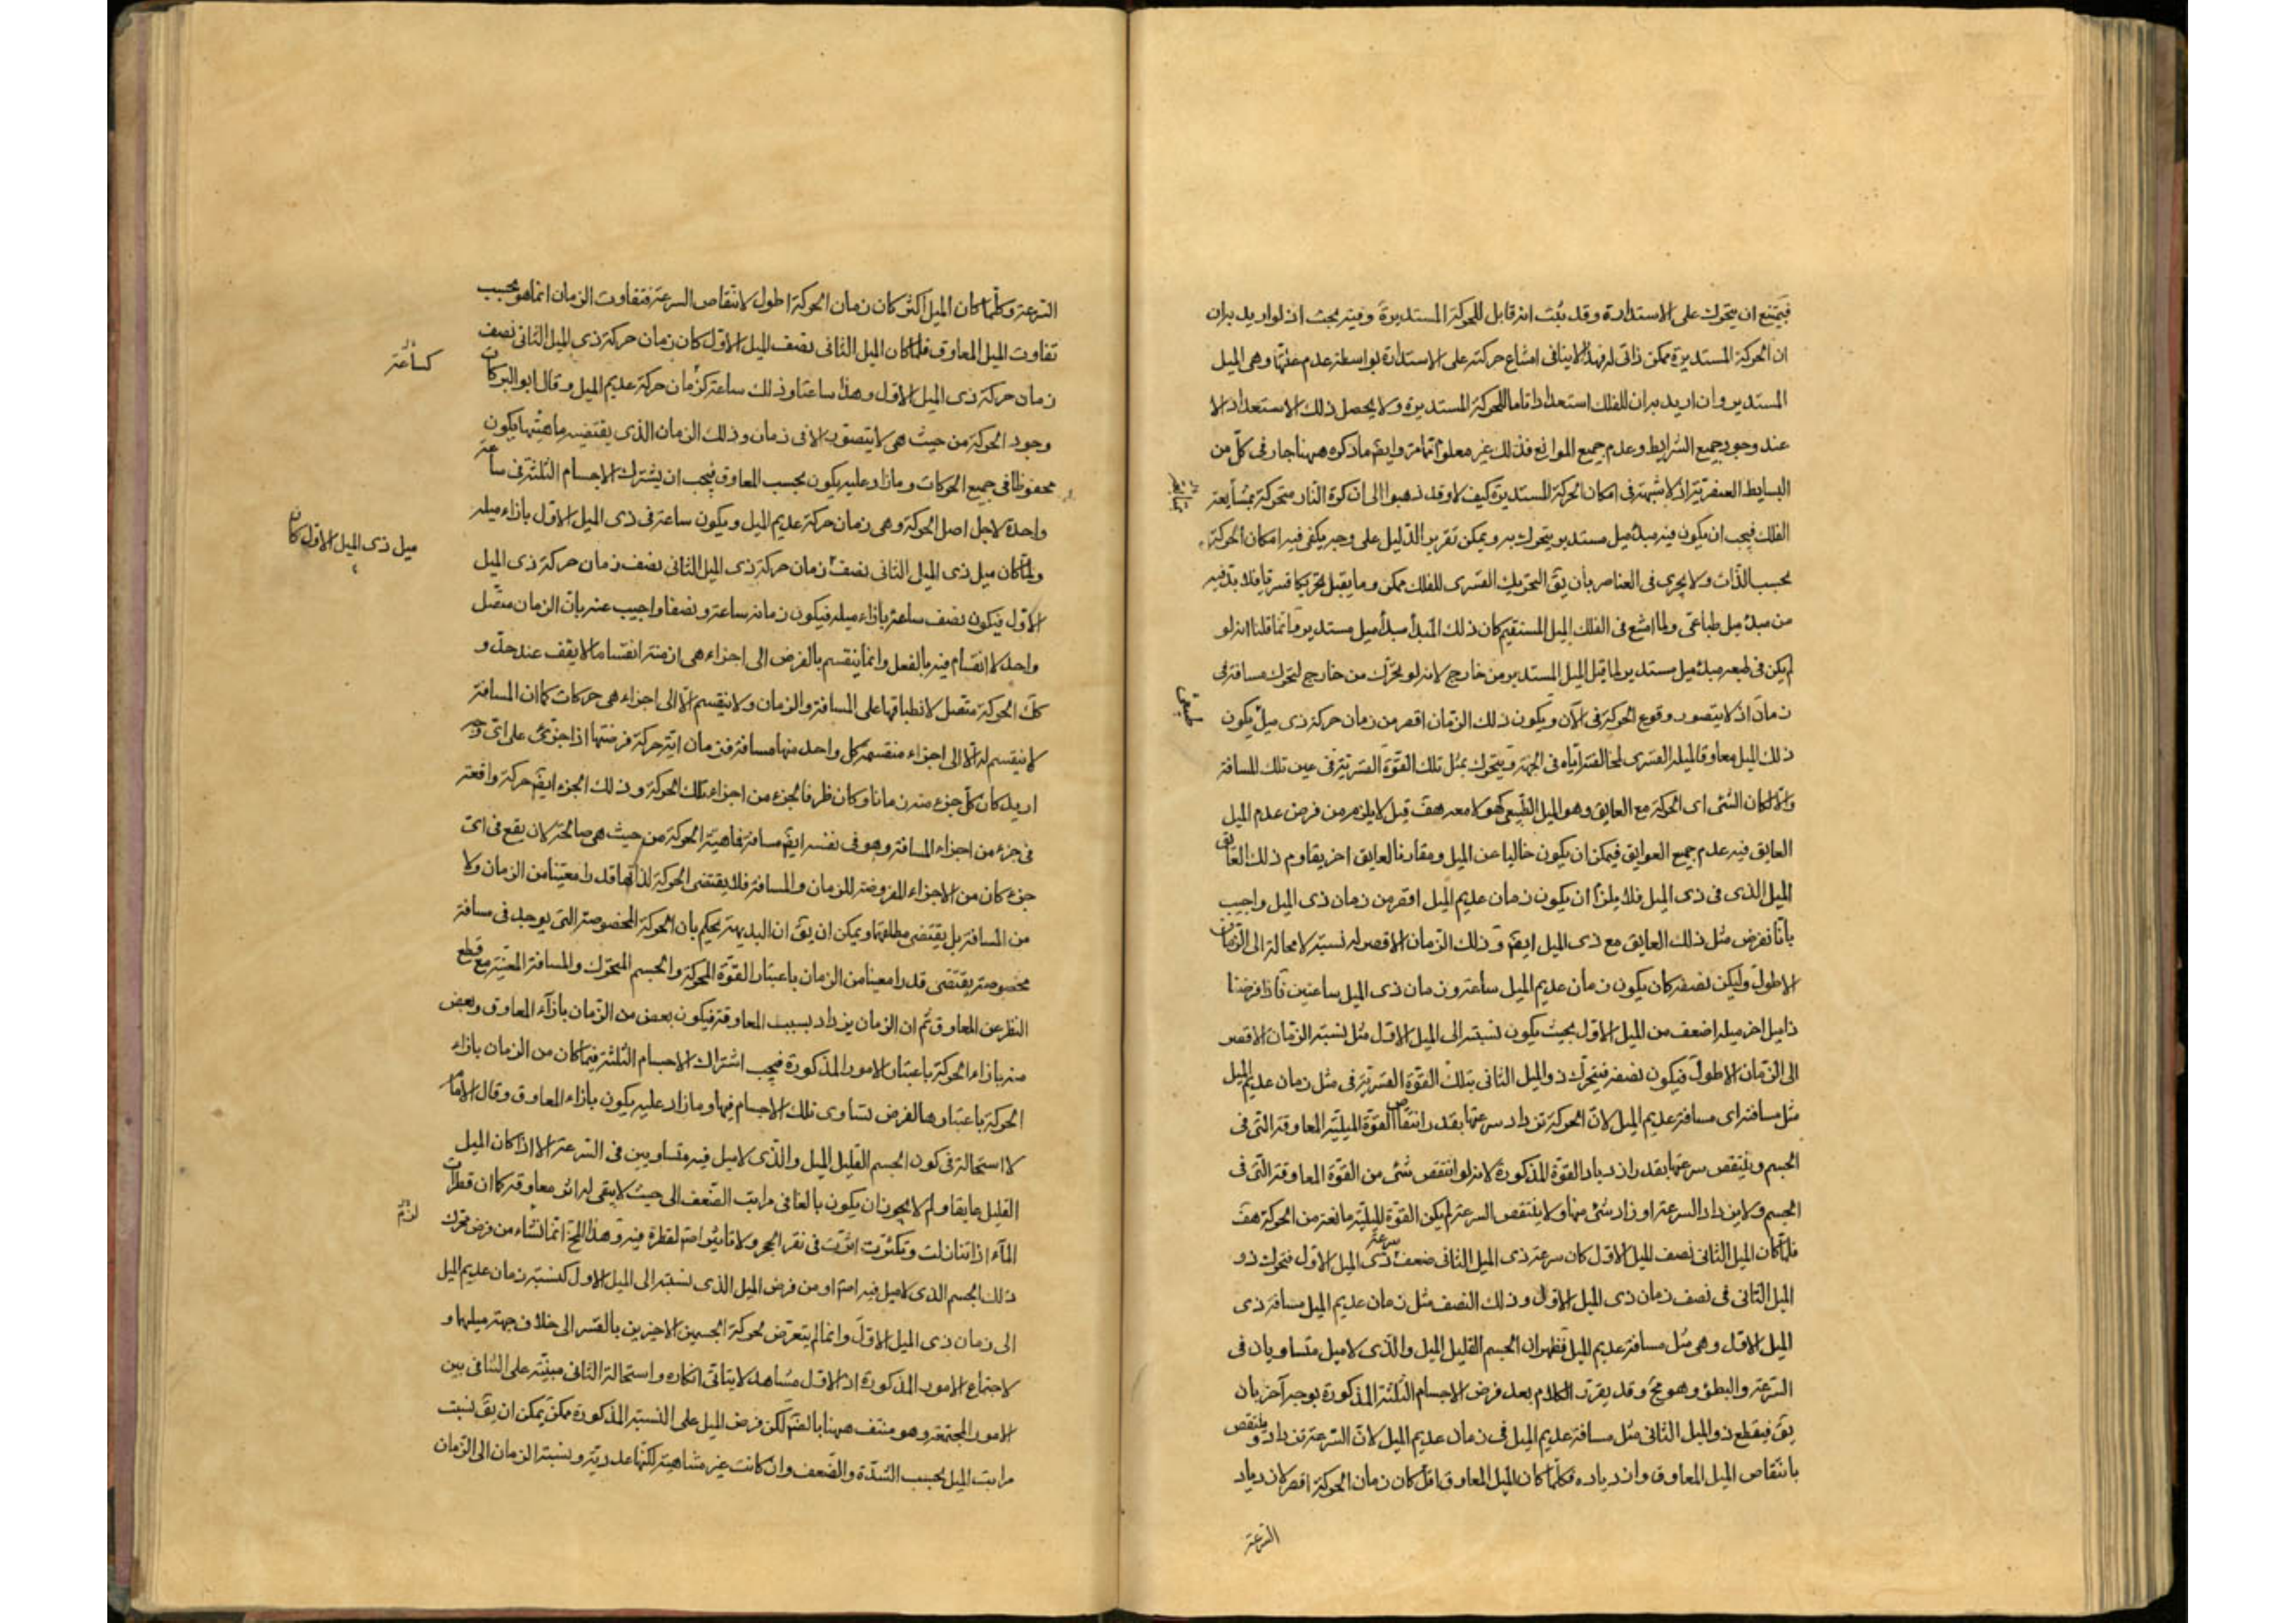 فيمتنع ان يتحرك على الاستدارة وقد ثبت انه قابل للحركة المستديرة وفيه بحث اذ لو اريد به ان
ان الحركة المستديرة ممكن ذاتى له فهذا لا ينافى امتناع حركته على الاستدارة بواسطة عدم علتها وهى الميل
المستدير وان اريد به ان للفلك استعدادا تاما للحركة المستديرة ولا يحصل ذلك الاستعداد الا
عند وجود جميع الشرايط وعدم جميع الموانع فذلك غير معلوم تمامه وايضم ما ذكره ههنا جار فى كل من
البسايط العنصرية اذ لا شبهة فى امكان الحركة المستديرة كيف لا وقد ذهبوا الى ان كرة النار متحركة بمشايعة
الفلك فيجب ان يكون فيه مبدء ميل مستدير يتحرك به ويمكن تقرير الدليل على وجه يكفى فيه امكان الحركة
بحسب الذات ولا يجرى فى العناصر بأن يق التحريك القسرى للفلك ممكن وما يقبل تحريكا قسريا فلا بد فيه
من مبدء ميل طباعى ولما امتنع فى الفلك الميل المستقيم كان ذلك المبدأ مبدأ ميل مستدير وانما قلنا انه لو
لم يكن فى طبعه مبدء ميل مستدير لما قبل الميل المستدير من خارج لانه لو تحرك من خارج لتحرك مسافة فى
زمان اذ لا يتصور وقوع الحركة فى الآن ويكون ذلك الزمان اقصر من زمان حركة ذى ميل يكون
طبيعى
ذلك الميل معاوقا لميله القسرى لمخالفته اياه فى الجهة ويتحرك بمثل تلك القوة القسرية فى عين تلك المسافة
والا لكان الشئ اى الحركة مع العايق وهو الميل الطبيعى كهو لا معه هف قيل لا يلزم من فرض عدم الميل
العايق فيه عدم جميع العوايق فيمكن ان يكون خاليا عن الميل ومقارنا لعايق اخر يقاوم ذلك العايق
الميل الذى فى ذى الميل فلا يلزم ان يكون زمان عديم الميل اقصر من زمان ذى الميل واجيب
بأنا نفرض مثل ذلك العايق مع ذى الميل ايضم وذلك الزمان الاقصر له نسبة لا محالة الى الزمان
الاطول وليكن نصفه كان يكون زمان عديم الميل ساعة وزمان ذى الميل ساعتين فاذا فرضنا
ذا ميل اخر ميله اضعف من الميل الاول بحيث يكون نسبته الى الميل الاول مثل نسبة الزمان الاقصر
الى الزمان الاطول فيكون نصفه فيتحرك ذو الميل الثانى بتلك القوة القسرية فى مثل زمان عديم الميل
مثل مسافته اى مسافة عديم الميل لان الحركة تزداد سرعتها بقدر انتقاص القوة الميلية المعاوقة التى فى
الجسم وينتقص سرعتها بقدر ازدياد القوة المذكورة لانه لو انتقص شئ من القوة المعاوقة التى فى
الجسم ولا يزداد السرعة او زاد شئ منها ولا ينتقص السرعة لم يكن القوة الميلية مانعة من الحركة هف
فلما كان الميل الثانى نصف الميل الاول كان سرعة ذى الميل الثانى ضعف سرعة ذى الميل الاول فتحرك ذو
الميل الثانى فى نصف زمان ذى الميل الاول وذلك النصف مثل زمان عديم الميل مسافة ذى
الميل الاول وهى مثل مسافة عديم الميل فظهر ان الجسم القليل الميل والذى لا ميل متساويان فى
السرعة والبطؤ وهو مح وقد يقرر الكلام بعد فرض الاجسام الثلثة المذكورة بوجه آخر بان
يق فيقطع ذو الميل الثانى مثل مسافة عديم الميل فى زمان عديم الميل لان السرعة تزداد وينتقص
بانتقاص الميل المعاوق وازدياده فكلما كان الميل المعاوق اقل كان زمان الحركة اقصر لازدياد
السرعة
السرعة وكلما كان الميل اكثر كان زمان الحركة اطول لانتقاص السرعة فتفاوت الزمان انما هو بحسب
تفاوت الميل المعاوق فلما كان الميل الثانى نصف الميل الاول كان زمان حركة ذى الميل الثانى نصف
كساعة
زمان حركة ذى الميل الاول وهذا ساعتا وذلك ساعة كزمان حركة عديم الميل وقال ابو البركات
وجود الحركة من حيث هى لا يتصور الا فى زمان وذلك الزمان الذى يقتضيه ماهيتها يكون
محفوظا فى جميع الحركات وما زاد عليه يكون بحسب المعاوق فيجب ان يشترك الاجسام الثلثة فى ساعة
واحدة لاجل اصل الحركة وهى زمان حركة عديم الميل ويكون ساعة فى ذى الميل الاول بازاء ميله
ميل ذى الميل الاول كان
ولما كان ميل ذى الميل الثانى نصف زمان حركة ذى الميل الثانى نصف زمان حركة ذى الميل
الاول فيكون نصف ساعة بازاء ميله فيكون زمانه ساعة ونصفا واجيب عنه بان الزمان متصل
واحد لا انقسام فيه بالفعل وانما ينقسم بالفرض الى اجزاء هى ازمنة انقساما لا يقف عند حد و
كك الحركة متصل لانطباقها على المسافة والزمان ولا ينقسم الا الى اجزاء هى حركات كما ان المسافة
لا ينقسم الا الى اجزاء منقسمة كل واحد منها مسافة فزمان اية حركة فرضتها اذا جزئ على اى وجه
اريد كان كل جزء منه زمانا وكان ظرفا لجزء من اجزاء تلك الحركة وذلك الجزء ايضم حركة واقعة
فى جزء من اجزاء المسافة وهو فى نفسه ايضم مسافة فماهية الحركة من حيث هى صالحة لان يقع فى اى
جزء كان من الاجزاء المفروضة للزمان والمسافة فلا يقتضى الحركة لذاتها قدرا معينا من الزمان ولا
من المسافة بل يقتضى مطلقها ويمكن ان يق ان البديهة يحكم بان الحركة المخصوصة التى يوجد فى مسافة
مخصوصة يقتضى قدرا معينا من الزمان باعتبار القوة المحركة والجسم المتحرك والمسافة المعينة مع قطع
النظر عن المعاوق ثم ان الزمان يزداد بسبب المعاوقة فيكون بعض من الزمان بازآء المعاوق وبعض
منه بازاء الحركة باعتبار الامور المذكورة فيجب اشتراك الاجسام الثلثة فيما كان من الزمان بازاء
الحركة باعتبارها لفرض تساوى تلك الاجسام فيها وما زاد عليه يكون بازاء المعاوق وقال الامام
لا استحالة فى كون الجسم القليل الميل والذى لا ميل فيه متساويين فى السرعة الا اذا كان الميل
القليل عايقا ولم لا يجوز ان يكون بالغا فى مراتب الضعف الى حيث لا يبقى له اثر معاوقة كما ان قطرات
المآء اذا تنازلت وتكثرت اثرت فى نقر الحجر ولا تاثير اصم لقطرة فيه وهذا المح انما نشاء من فرض تحرك
ذلك الجسم الذى لا ميل فيه اصم او من فرض الميل الذى نسبته الى الميل الاول كنسبة زمان عديم الميل
الى زمان ذى الميل الاول وانما لم يتعرض لحركة الجسمين الاخيرين بالقسر الى خلاف جهة ميلهما و
لاجتماع الامور المذكورة اذ الاول مشاهد لا يتاتى انكاره واستحالة الثانى مبنية على التنافى بين
الامور المجتمعة وهو منتف ههنا بالضم لكن فرض الميل على النسبة المذكورة ممكن يمكن ان يق نسبت
مراتب الميل بحسب الشدة والضعف وان كانت غير متناهية لكنها عددية ونسبة الزمان الى الزمان